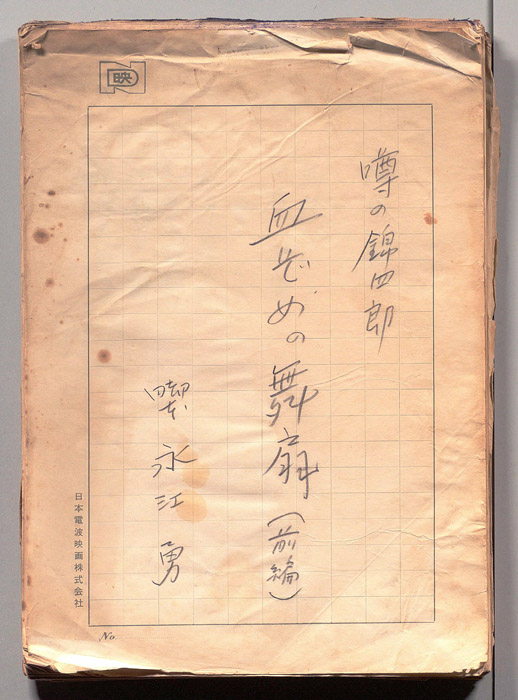 映
噂の錦四郎
血ぞめの舞扇(前編)
脚本 永江勇
日本電波映画株式会社
No.